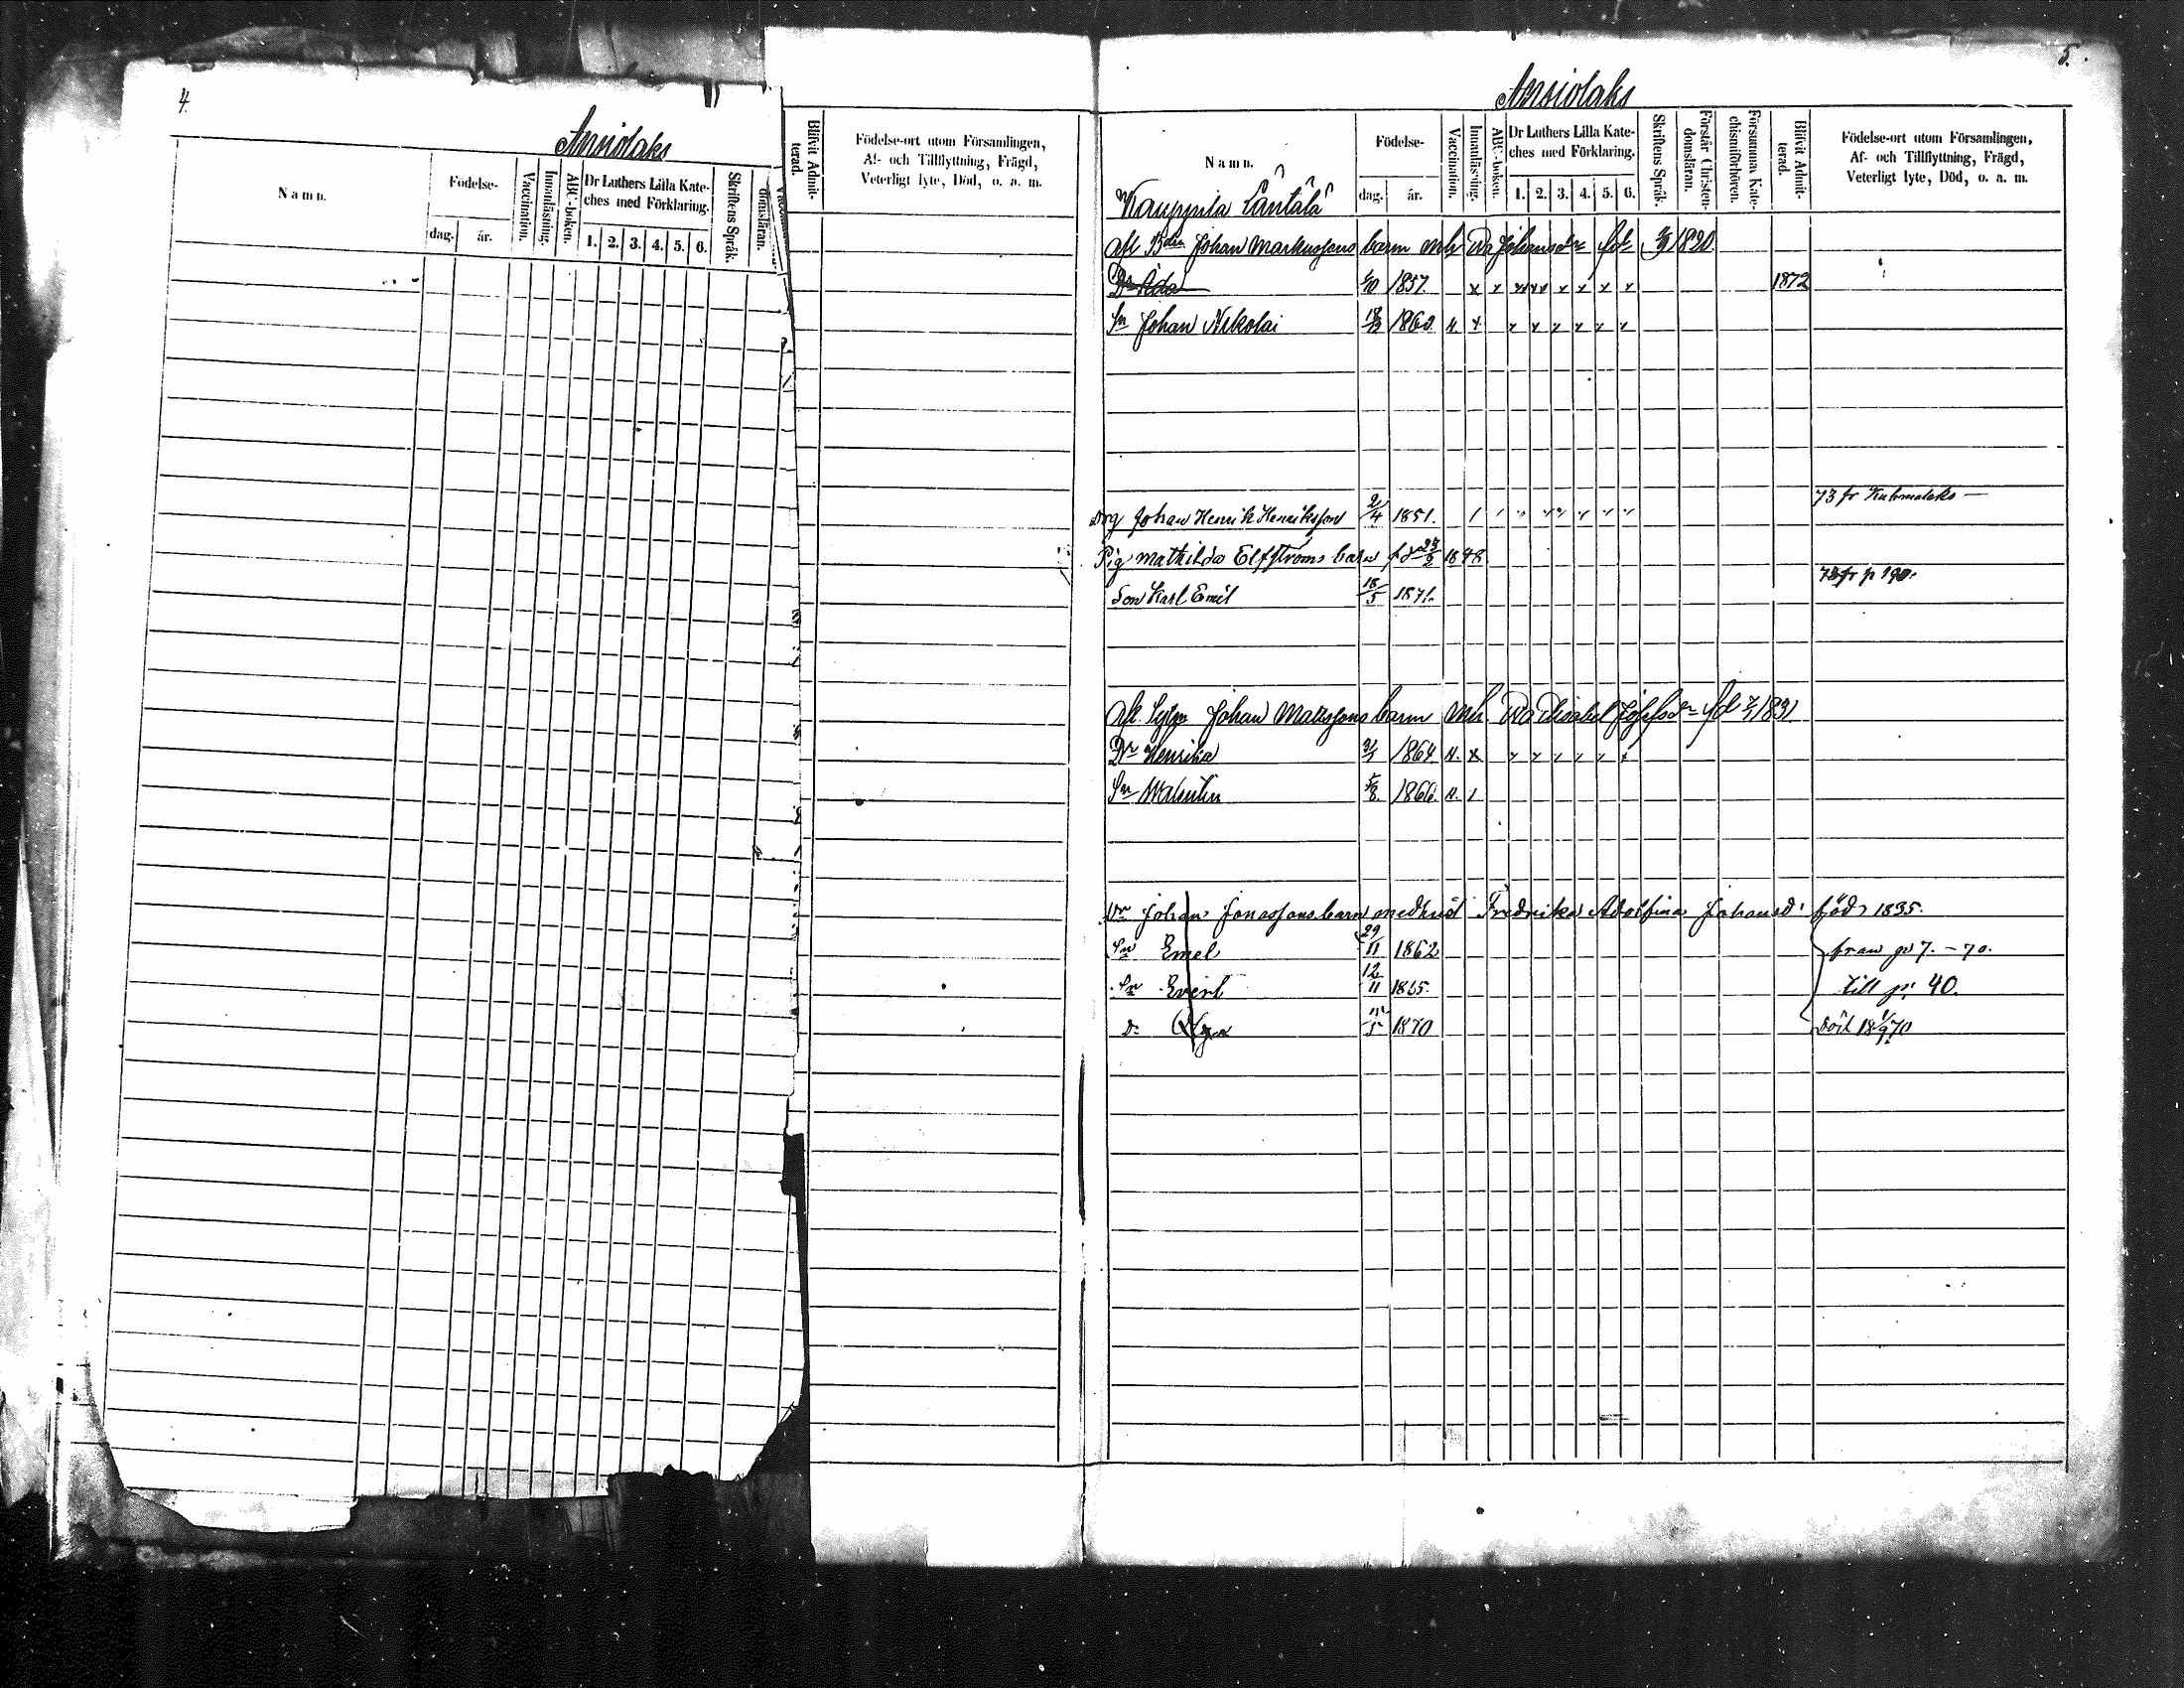 4.
Ansiolaks
Namn.
Födelse-
dag.
år.
Vaccination.
Innanläsning.
ABC-boken.
Dr Luthers Lilla Kate-
ches med Förklaring.
1. 2. 3. 4. 5. 6.
Skriftens Språk.
domsläran.
Blifvit Admit-
terad.
Födelse-ort utom Församlingen,
Af- och Tillflyttning, Frägd,
Veterligt lyte, Död, o. a. m.
5.
Ansiolaks
Namn.
Födelse-
dag.
år.
Vaccination.
Innanläsning.
ABC-boken.
Dr Luthers Lilla Kate-
ches med Förklaring.
1. 2. 3. 4. 5. 6.
Skriftens Språk.
Förstår Christen-
domsläran.
Försumma Kate-
chismiförhören.
Blifvit Admit-
terad.
Födelse-ort utom Församlingen,
Af- och Tillflyttning, Frägd,
Veterligt lyte, Död, o. a. m.
Kauppila Låntålå
Afl Johan Markussons barn Johansdr 1820
Dr Ada 1857 1872
Sn Johan Nikolai 1860
73 fr Kuhmalaks
Drg Johan Henrik Henriksson 2/4 1851.
Pig Mathilda Elfströms barn 1848
73 fr p 190.
Son Karl Emil 18/5 1871.
Afl. Johan Matssons barn Josefsdr 1831
Dr Henrika 1864
Sn Walentin 1866
Johan Jonassons barn med hust Fredrika Adolfina Johansd: född 1835.
Sn Emel 29/11 1862 fran p: 7. - 70.
Sn Evert 12/11 1865 till p: 40.
D. Olga 1870 Död 18 1/9 70